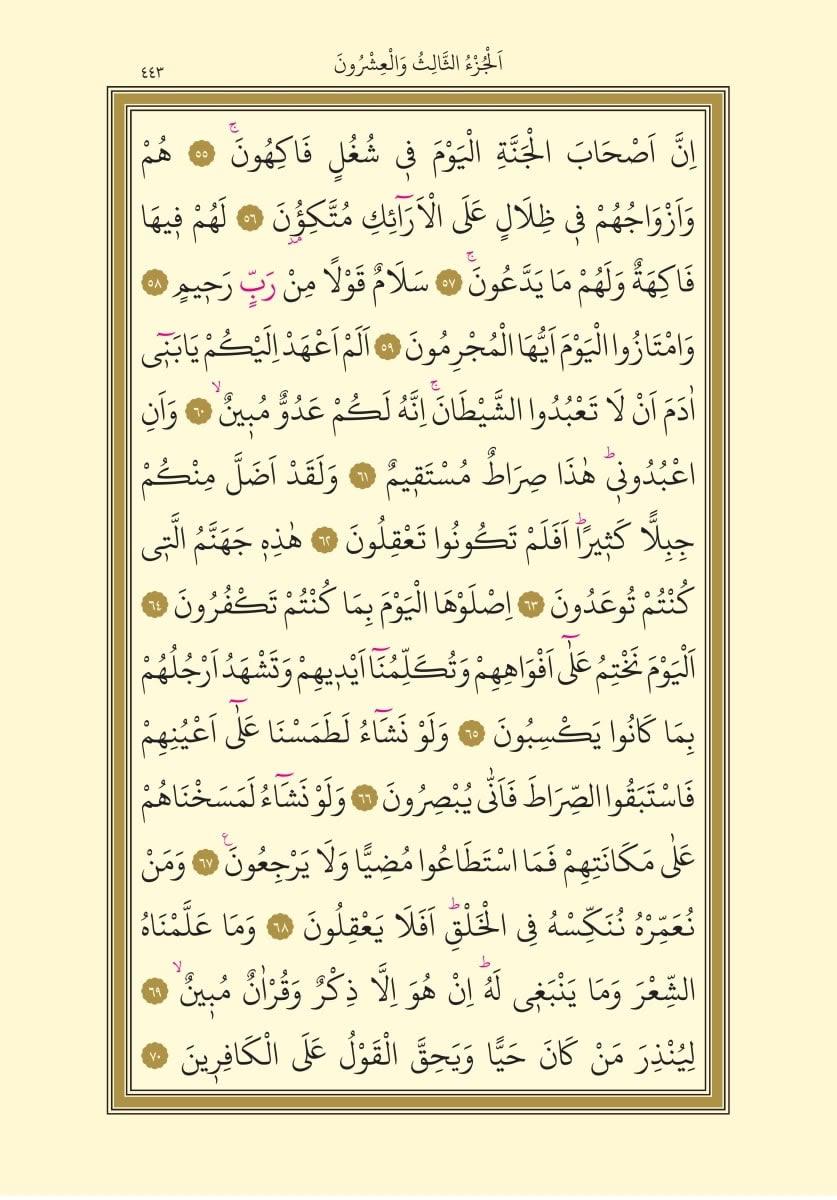 اَلْجُزْءُ الثَّالِثُ وَالْعِشْرُونَ
٤٤٣
اِنَّ اَصْحَابَ الْجَنَّةِ الْيَوْمَ فٖي شُغُلٍ فَاكِهُونَۚ ﴿٥٥﴾ هُمْ
وَاَزْوَاجُهُمْ فٖي ظِلَالٍ عَلَى الْاَرَٓائِكِ مُتَّكِؤُ۫نَ ﴿٥٦﴾ لَهُمْ فٖيهَا
فَاكِهَةٌ وَلَهُمْ مَا يَدَّعُونَۚ ﴿٥٧﴾ سَلَامٌ قَوْلًا مِنْ رَبٍّ رَحٖيمٍ ﴿٥٨﴾
وَامْتَازُوا الْيَوْمَ اَيُّهَا الْمُجْرِمُونَ ﴿٥٩﴾ اَلَمْ اَعْهَدْ اِلَيْكُمْ يَابَنٖٓي
اٰدَمَ اَنْ لَا تَعْبُدُوا الشَّيْطَانَۚ اِنَّهُ لَكُمْ عَدُوٌّ مُبٖينٌۙ ﴿٦٠﴾ وَاَنِ
اعْبُدُونٖيؕ هٰذَا صِرَاطٌ مُسْتَقٖيمٌ ﴿٦١﴾ وَلَقَدْ اَضَلَّ مِنْكُمْ
جِبِلًّا كَثٖيرًاؕ اَفَلَمْ تَكُونُوا تَعْقِلُونَ ﴿٦٢﴾ هٰذِهٖ جَهَنَّمُ الَّتٖي
كُنْتُمْ تُوعَدُونَ ﴿٦٣﴾ اِصْلَوْهَا الْيَوْمَ بِمَا كُنْتُمْ تَكْفُرُونَ ﴿٦٤﴾
اَلْيَوْمَ نَخْتِمُ عَلٰٓى اَفْوَاهِهِمْ وَتُكَلِّمُنَٓا اَيْدٖيهِمْ وَتَشْهَدُ اَرْجُلُهُمْ
بِمَا كَانُوا يَكْسِبُونَ ﴿٦٥﴾ وَلَوْ نَشَٓاءُ لَطَمَسْنَا عَلٰٓى اَعْيُنِهِمْ
فَاسْتَبَقُوا الصِّرَاطَ فَاَنّٰى يُبْصِرُونَ ﴿٦٦﴾ وَلَوْ نَشَٓاءُ لَمَسَخْنَاهُمْ
عَلٰى مَكَانَتِهِمْ فَمَا اسْتَطَاعُوا مُضِيًّا وَلَا يَرْجِعُونَࣖ ﴿٦٧﴾ وَمَنْ
نُعَمِّرْهُ نُنَكِّسْهُ فِي الْخَلْقِؕ اَفَلَا يَعْقِلُونَ ﴿٦٨﴾ وَمَا عَلَّمْنَاهُ
الشِّعْرَ وَمَا يَنْبَغٖي لَهُؕ اِنْ هُوَ اِلَّا ذِكْرٌ وَقُرْاٰنٌ مُبٖينٌۙ ﴿٦٩﴾
لِيُنْذِرَ مَنْ كَانَ حَيًّا وَيَحِقَّ الْقَوْلُ عَلَى الْكَافِرٖينَ ﴿٧٠﴾